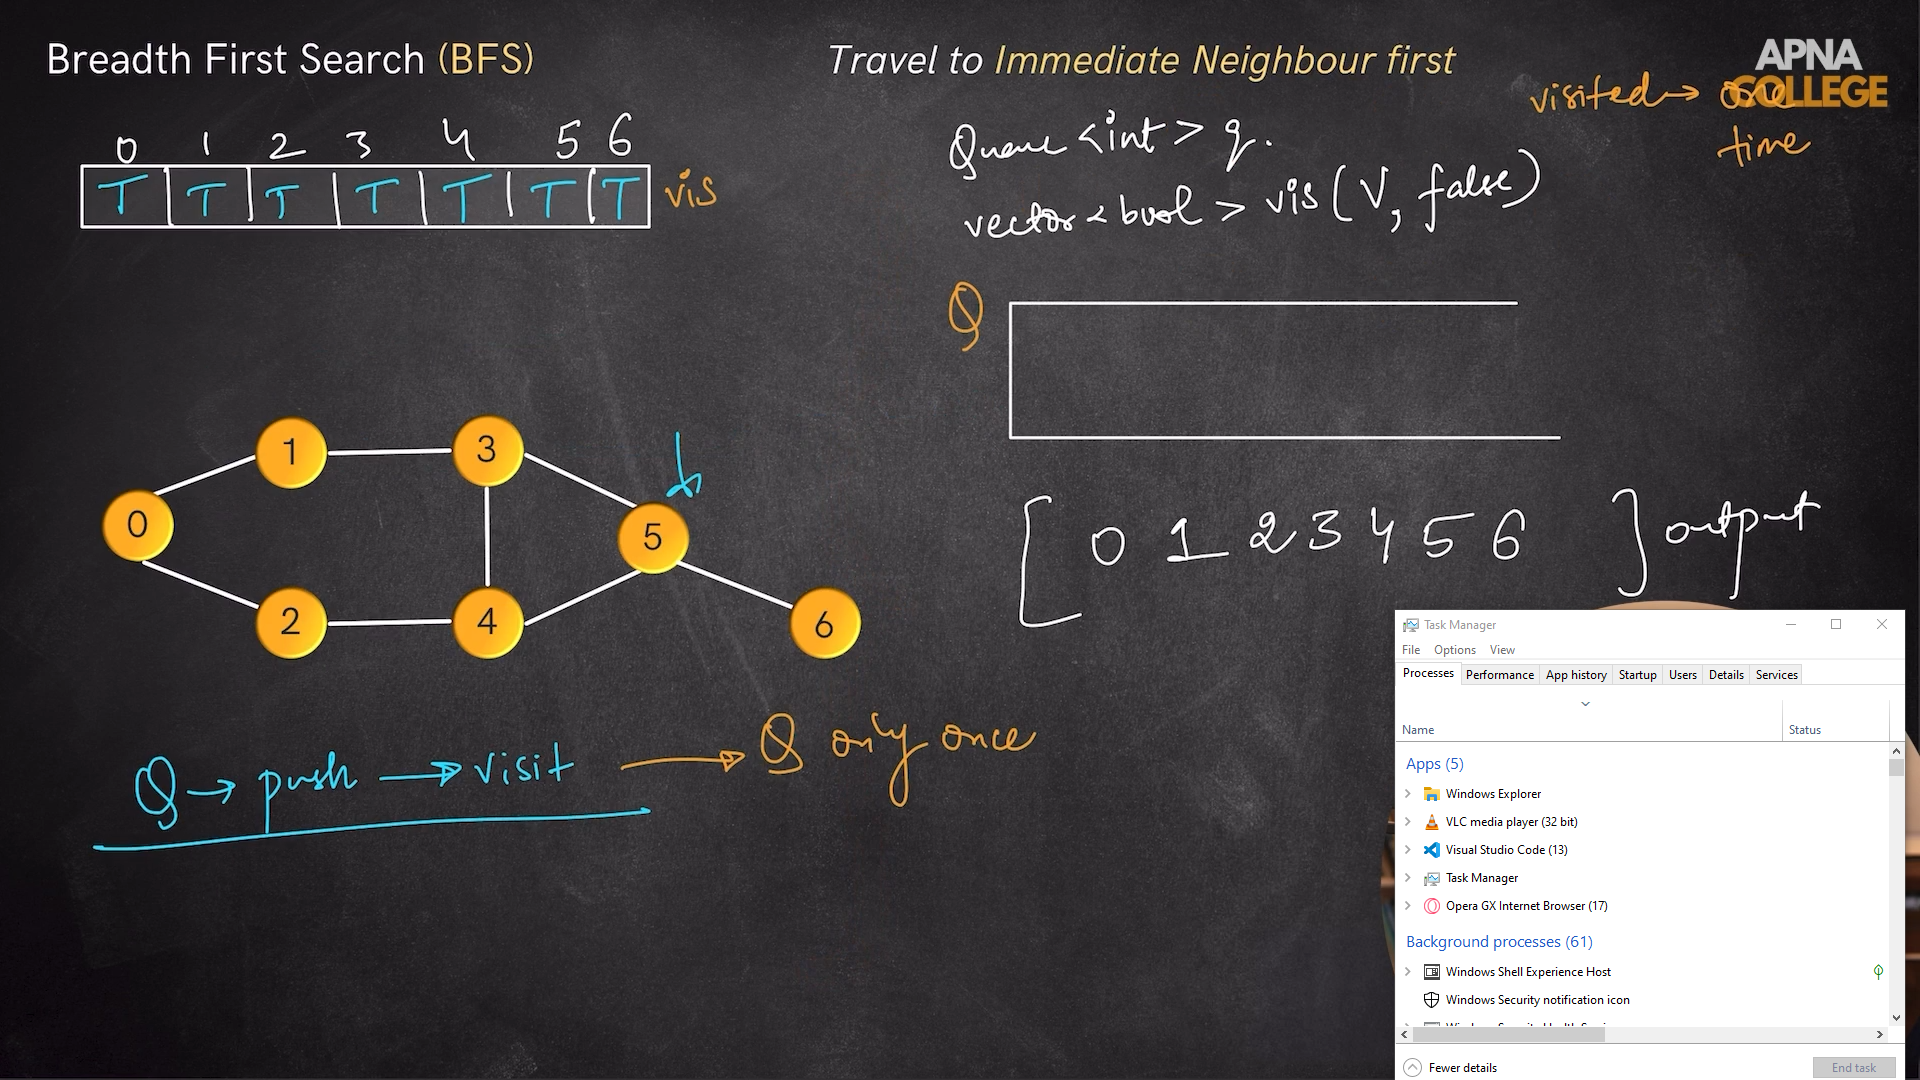 Breadth First Search (BFS)
Travel to Immediate Neighbour first
APNA
COLLEGE
visited → one
time
0 1 2 3 4 5 6
T T T T T T T vis
Queue <int> q.
vector<bool> vis(V, false)
Q
1 3
0 5
2 4 6
[ 0 1 2 3 4 5 6 ] output
Q → push → visit → Q only once
Task Manager
File Options View
Processes Performance App history Startup Users Details Services
Name Status
Apps (5)
Windows Explorer
VLC media player (32 bit)
Visual Studio Code (13)
Task Manager
Opera GX Internet Browser (17)
Background processes (61)
Windows Shell Experience Host
Windows Security notification icon
Fewer details End task